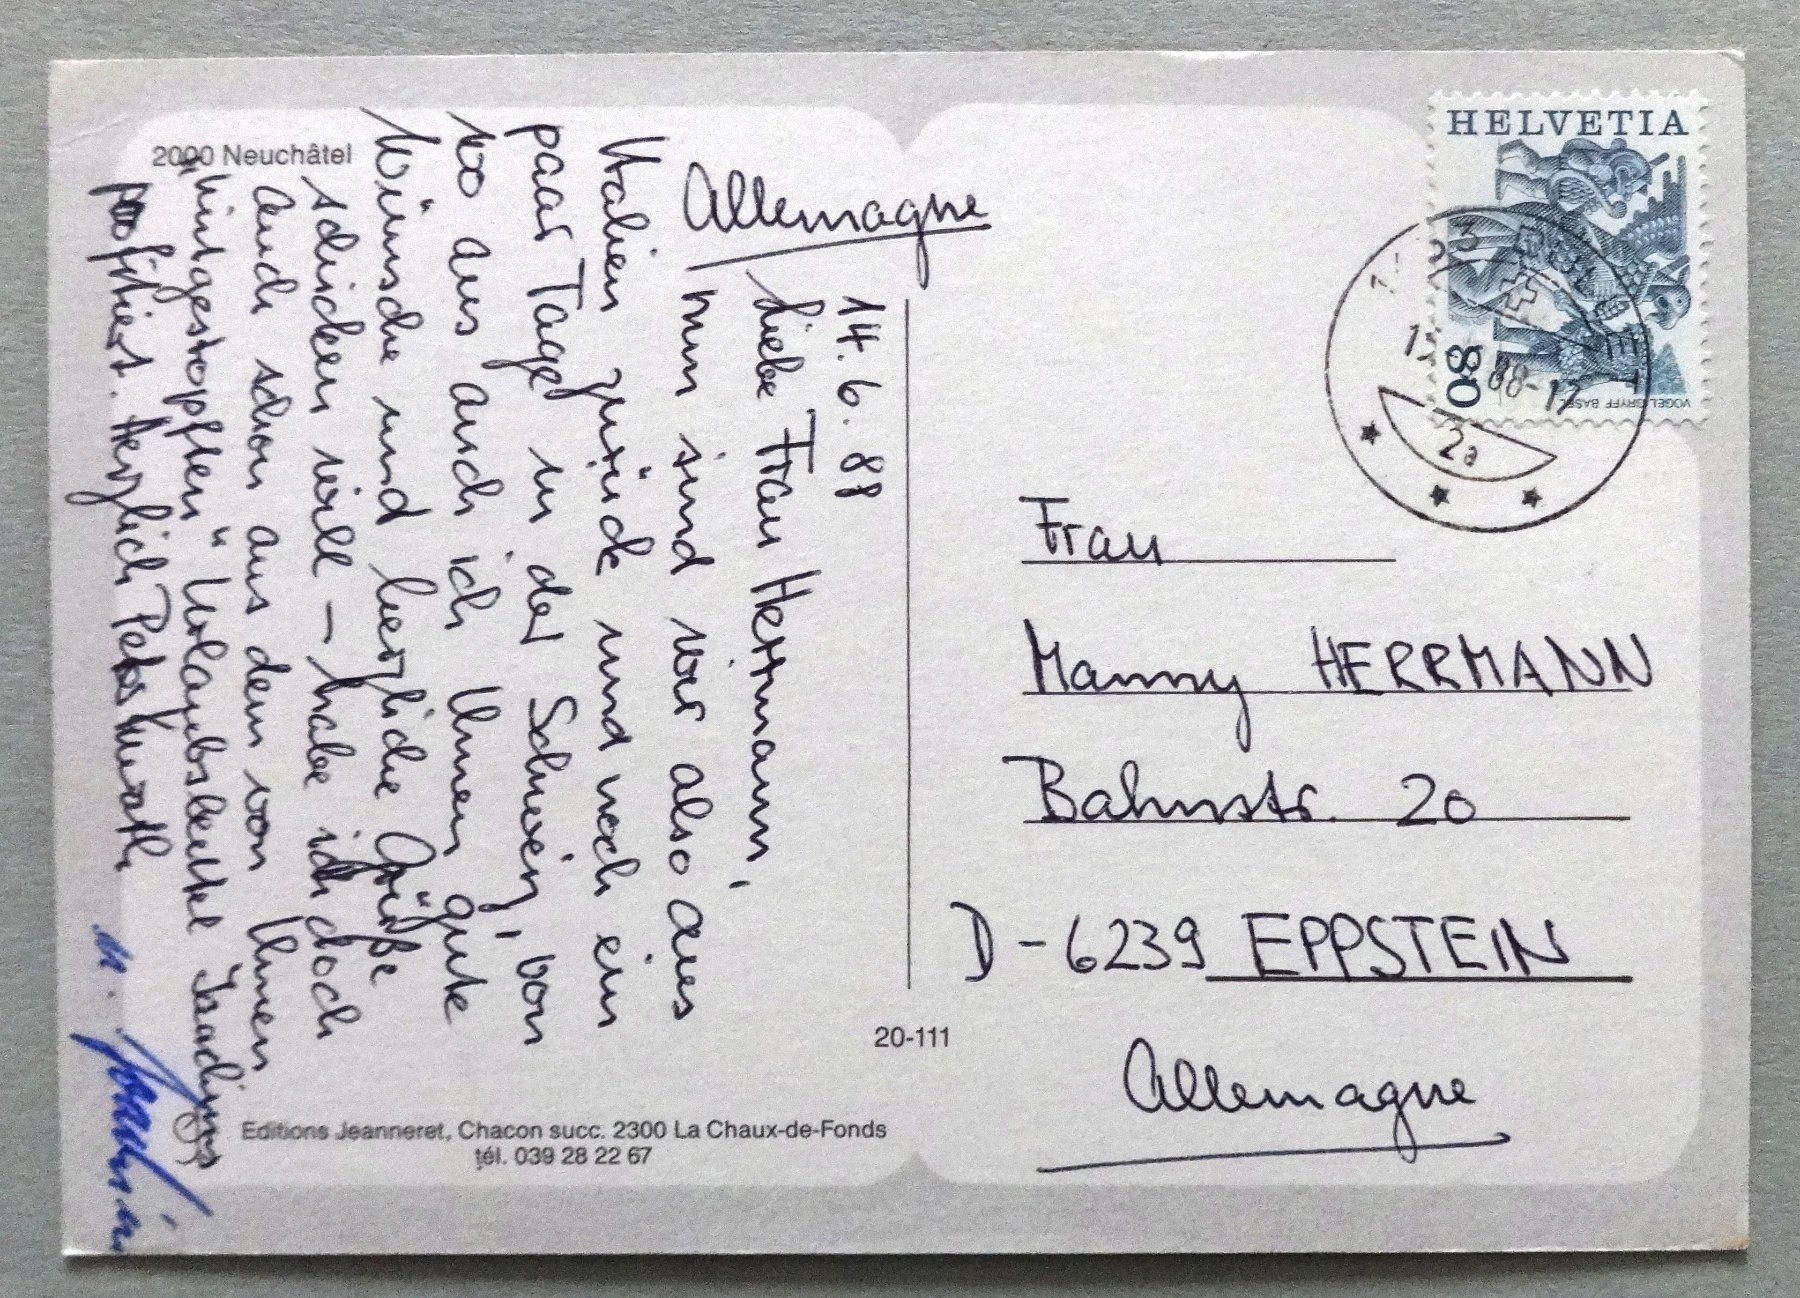 2000 Neuchâtel
Allemagne
14. 6. 88
Liebe Frau Herrmann,
nun sind wir also aus
Italien zurück und noch ein
paar Tage in der Schweiz, von
wo aus auch ich Ihnen gute
Wünsche und herzliche Grüße
schicken will – habe ich doch
auch schon aus dem von Ihnen
"hingestopften" Urlaubsbeutel Joachims
profitiert. Herzlich Petra
u. Joachim
Editions Jeanneret, Chacon succ. 2300 La Chaux-de-Fonds
tél. 039 28 22 67
20-111
HELVETIA
80
VOGEL GRYFF BASEL
88-17
2a
Frau
Manny HERRMANN
Bahnstr. 20
D-6239 EPPSTEIN
Allemagne